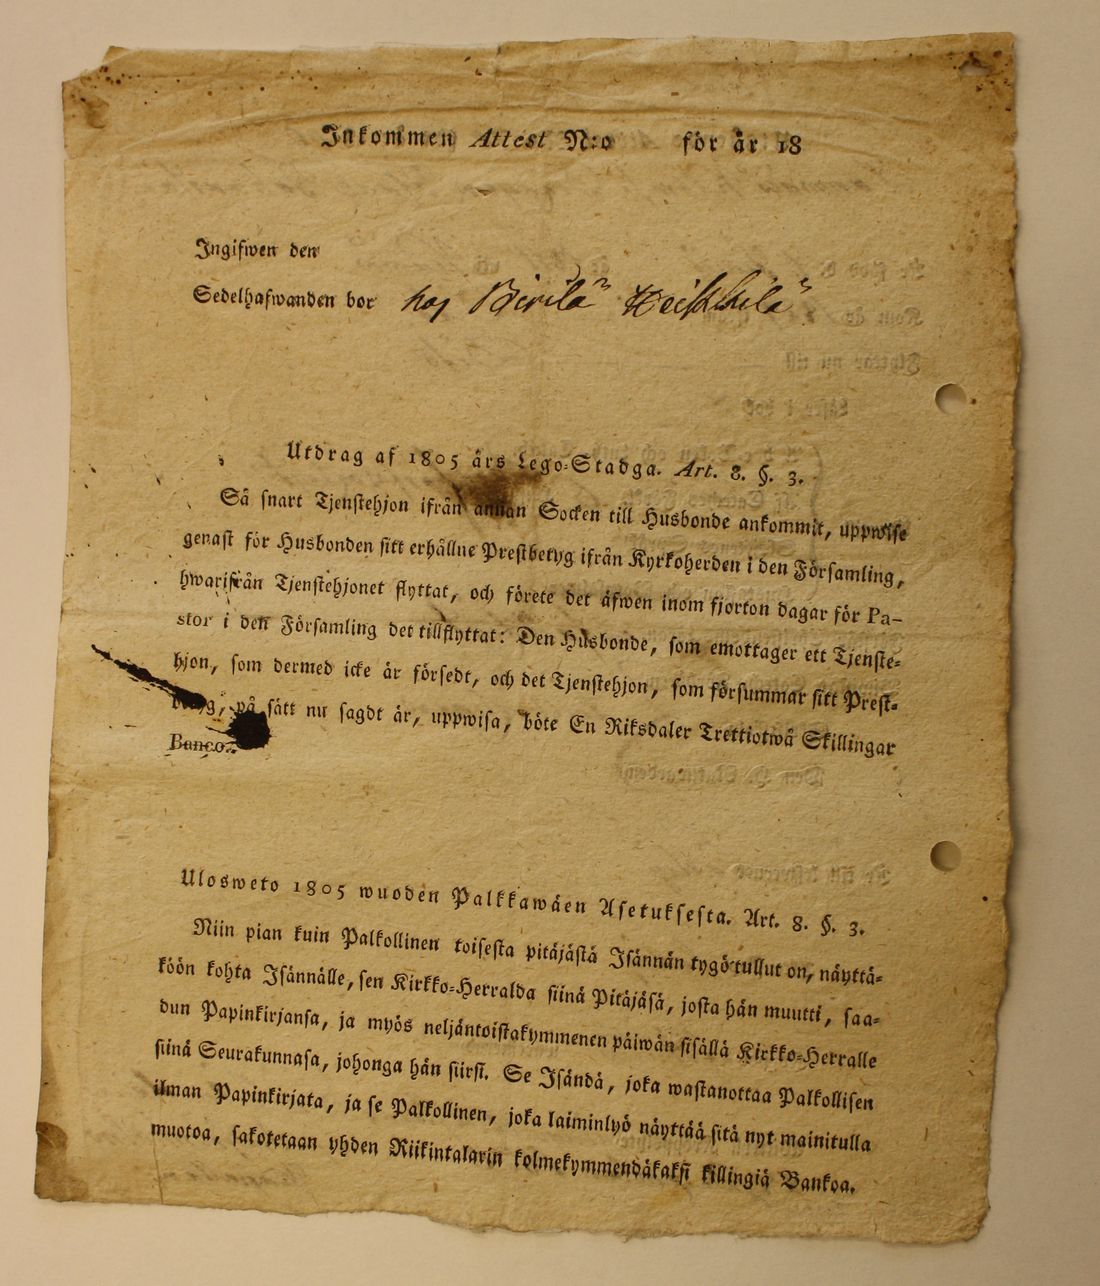 Inkommen Attest N:o för år 18
Ingifwen den
Sedelhafwanden bor hos Birilä
Utdrag af 1805 års Lego-Stadga. Art. 8. §. 3.
Så snart Tjenstehjon ifrån annan Socken till Husbonde ankommit, uppwise
genast för Husbonden sitt erhållne Prestbetyg ifrån Kyrkoherden i den Församling,
hwarifrån Tjenstehjonet flyttat, och förete det äfwen inom fjorton dagar för Pa-
stor i den Församling det tillflyttat: Den Husbonde, som emottager ett Tjenste-
hjon, som dermed icke är försedt, och det Tjenstehjon, som försummar sitt Prest-
betyg, på sätt nu sagdt är, uppwisa, böte En Riksdaler Trettiotwå Skillingar
Banco.
Ulosweto 1805 wuoden Palkkawäen Asetuksesta. Art. 8. §. 3.
Niin pian kuin Palkollinen toisesta pitäjästä Isännän tygö tullut on, näyttä-
köön kohta Isännälle, sen Kirkko-Herralda siinä Pitäjäsä, josta hän muutti, saa-
dun Papinkirjansa, ja myös neljäntoistakymmenen päiwän sisällä Kirkko-Herralle
siinä Seurakunnasa, johonga hän siirsi. Se Isändä, joka wastanottaa Palkollisen
ilman Papinkirjata, ja se Palkollinen, joka laiminlyö näyttää sitä nyt mainitulla
muotoa, sakotetaan yhden Riikintalarin kolmekymmendäkaksi killingiä Bankoa.